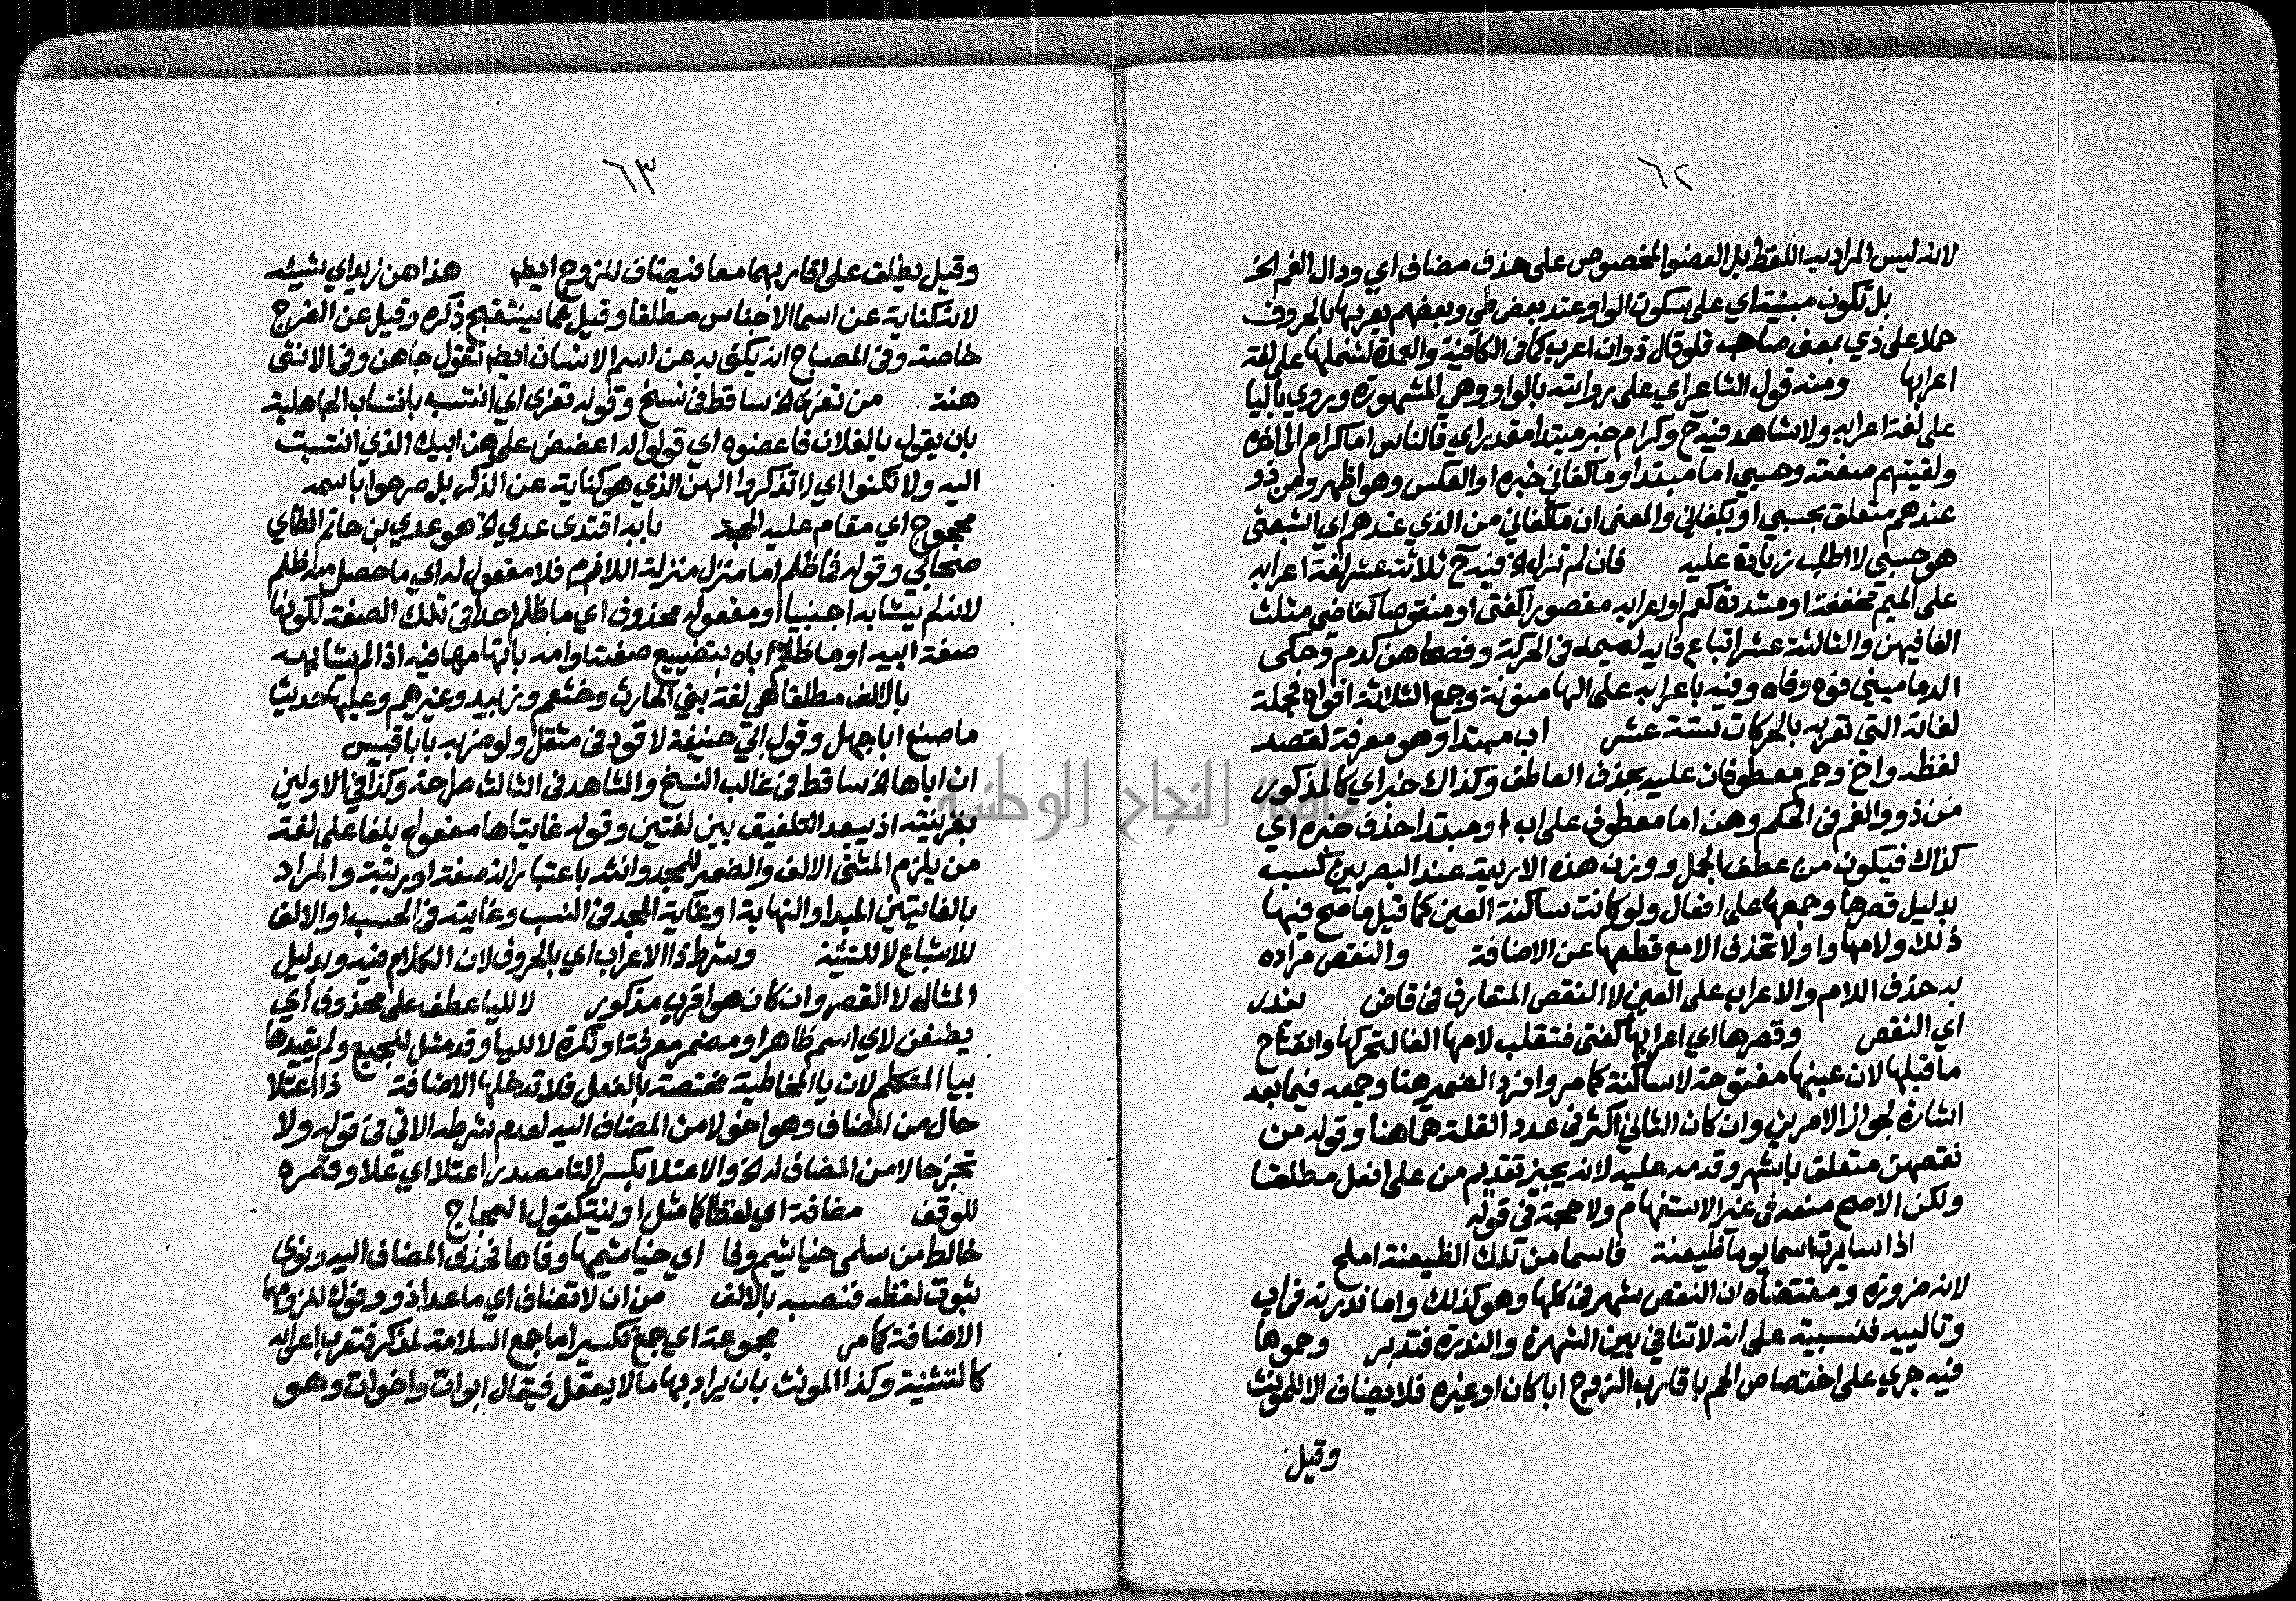 ٦٢
لانه ليس المراد به اللفظ بل العضو المخصوص على حذف مضاف اي ودال الفم الخ
بل تكون مبنية اي على سكون الواو وعند بعض طي وبعضهم يعربها بالحروف
حملا على ذي بمعنى صاحب فلو قال ذو ان اعرب كما في الكافية والعمدة لشملها على لغة
اعرابها ومنه قول الشاعر اي على روايته بالواو وهي المشهورة وروي باليا
على لغة اعرابه ولا شاهد فيه ح وكرام خبر مبتدا مقدر اي فالناس اما كرام الى اخره
ولقيتهم صفته وحسبي اما مبتدا وما كفاني خبره او العكس وهو اظهر ومن ذو
عندهم متعلق بحسبي او بكفاني والمعنى ان ما كفاني من الذي عندهم اي الشعبى
هو حسبي لا اطلب زيادة عليه فان لم تزل الخ فيه ح ثلاثة عشر لغة اعرابه
على الميم مخففة او مشددة كعم او اعرابه مقصورا كفتى او منقوصا كقاضي مثلث
الفا فيهن والثالثة عشر اتباع فايه لميمه في الحركة وفصحاهن كدم وحكى
الدماميني فوه وفاه وفيه باعرابه على الها منونة وجمع الثلاثة افواه فجملة
لغاته التي تعربه بالحركات ستة عشر اب مبتدا وهو معرفة لقصد
لفظه واخ وحم معطوفان عليه بحذف العاطف وكذاك خبر اي كالمذكور
من ذو والفم في الحكم وهن اما معطوف على اب او مبتدا حذف خبره اي
كذاك فيكون من عطف الجمل ووزن هذه الاربعة عند البصريين كسبب
بدليل قصرها وجمعها على افعال ولو كانت ساكنة العين كما قيل ما صح فيها
ذلك ولامها واو ولا تحذف الا مع قطعها عن الاضافة والنقص مراده
به حذف اللام والاعراب على العين لا النقص المتعارف في قاض يندر
اي النقص وقصرها اي اعرابها كفتى فتقلب لامها الفا لتحركها وانفتاح
ما قبلها لان عينها مفتوحة لا ساكنة كما مر وافرد الضمير هنا وجمعه فيما بعد
اشارة لجواز الامرين وان كان الثاني اكثر في عدد القلة كما هنا وقوله من
نقصهن متعلق باشهر وقدمه عليه لانه يجيز تقديم من على افعل مطلقا
ولكن الاصح منعه في غير الاستفهام ولا حجة في قوله
اذا سايرت اسما يوما ظعينة فاسما من تلك الظعينة املح
لانه ضرورة ومقتضاه ان النقص شهر في كلها وهو كذلك واما ندرته في اب
وتالييه فنسبية على انه لا تنافي بين الشهرة والندرة فتدبر وحموها
فيه جري على اختصاص الحم باقارب الزوج ابا كان او غيره فلا يضاف الا للمونث
وقيل
٦٣
وقيل يطلق على اقاربهما معا فيضاف للزوج ايضا هذا هن زيد اي شيئه
لانه كناية عن اسما الاجناس مطلقا وقيل عما يستقبح ذكره وقيل عن الفرج
خاصة وفي المصباح انه يكنى به عن اسم الانسان ايضا تقول جا هن وفي الانثى
هنة من تعزى الخ ساقط في نسخ وقوله تعزى اي انتسب بانتساب الجاهلية
بان يقول يا لفلان فاعضوه اي قولوا له اعضض على هن ابيك الذي انتسبت
اليه ولا تكنوا اي لا تذكروا الهن الذي هو كناية عن الذكر بل صرحوا باسمه
محجوج اي مقام عليه الحجة بابه اقتدى عدي الخ هو عدي بن حاتم الطاي
صحابي وقوله فما ظلم اما منزل منزلة اللازم فلا مفعول له اي ما حصل منه ظلم
لانه لم يشابه اجنبيا او مفعوله محذوف اي ما ظلم احدا في تلك الصفة لكونها
صفة ابيه او ما ظلم اباه بتضييع صفته او امه باتهامها فيه اذا لم يشابهه
بالالف مطلقا هي لغة بني الحارث وخثعم وزبيد وغيرهم وعليها حديث
ما صنع ابا جهل وقول ابي حنيفة لا قود في مثقل ولو ضربه بابا قبيس
ان اباها الخ ساقط في غالب النسخ والشاهد في الثالث صراحة وكذا في الاولين
بقرينته اذ يبعد التلفيق بين لغتين وقوله غايتاها مفعول بلغا على لغة
من يلزم المثنى الالف والضمير للمجد وانثه باعتبار انه صفة او رتبة والمراد
بالغايتين المبدا والنهاية او غاية المجد في النسب وغايته في الحسب او الالف
للاشباع لا للتثنية وشرط ذا الاعراب اي بالحروف لان الكلام فيه وبدليل
المثال لا القصر وان كان هو اقرب مذكور لا لليا عطف على محذوف اي
يضفن لاي اسم ظاهر او مضمر معرفة او نكرة لا لليا وقد مثل للجميع ولم يقيدها
بيا المتكلم لان يا المخاطبة مختصة بالفعل فلا تدخلها الاضافة ذا اعتلا
حال من المضاف وهو اخو لا من المضاف اليه لعدم شرطه الاتي في قوله ولا
تجز حالا من المضاف له الخ والاعتلا بكسر التا مصدر اعتلا اي علا وقصره
للوقف مضافة اي لفظا كما مثل او نية كقول العجاج
خالط من سلمى خياشيم وفا اي خياشيمها وفاها فحذف المضاف اليه ونوى
ثبوت لفظه فنصبه بالالف من ان لا تضاف اي ما عدا ذو وفوك للزومها
الاضافة كما مر مجموعة اي جمع تكسير اما جمع السلامة لمذكر فتعرب اعرابه
كالتثنية وكذا المونث بان يراد بها ما لا يعقل فيقال ابوات واخوات وهو